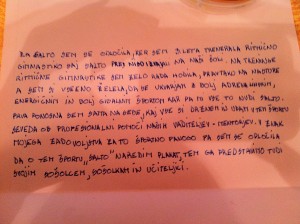 ZA SALTO SEM SE ODLOČILA, KER SEM 3 LETA TRENIRALA RITMIČNO
GIMNASTIKO SAJ SALTO PREJ NISO IZVAJALI NA NAŠ ŠOLI. NA TRENINGE
RITMIČNE GIMNASTIKE SEM ZELO RADA HODILA, PRAV TAKO NA NASTOPE
A SEM SI VSEENO ŽELELA, DA SE UKVARJAM Z BOLJ ADRENALINSKIM,
ENERGIČNIM IN BOLJ GIBALNIM ŠPORTOM KAR PA TO VSE TO NUDI SALTO.
PRAV PONOSNA SEM SAMA NA SEBE, KAJ VSE SI DRZNEM IN UPAM V TEM ŠPORTU
SEVEDA OB PROFESIONALNI POMOČI NAŠIH VADITELJEV - MENTORJEV. V ZNAK
MOJEGA ZADOVOLJSTVA ZA TO ŠPORTNO PANOGO PA SEM SE ODLOČILA
DA O TEM ŠPORTU "SALTO" NAREDIM PLAKAT, TER GA PREDSTAVIM TUDI
SVOJIM SOŠOLCEM, SOŠOLKAM IN UČITELJICI.